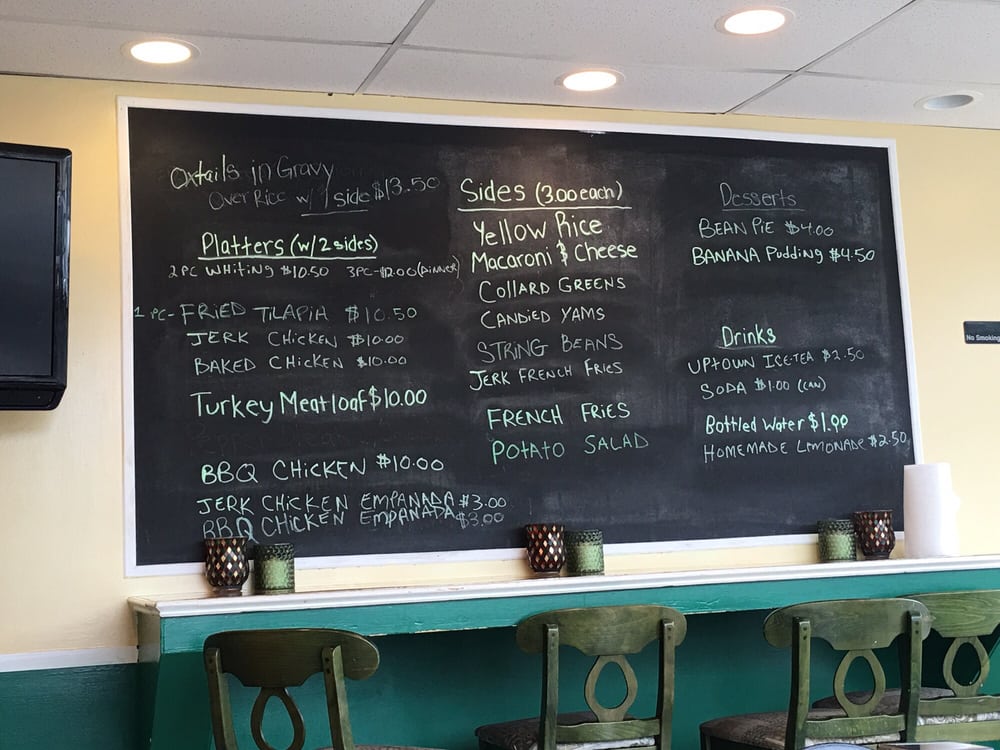 Oxtails in Gravy
Over Rice w/ 1 side $13.50
Platters (w/2 sides)
2 PC WHITING $10.50 3PC-$12.00 (DINNER)
1 PC- FRIED TILAPIA $10.50
JERK CHICKEN $10.00
BAKED CHICKEN $10.00
Turkey Meatloaf $10.00
BBQ CHICKEN $10.00
JERK CHICKEN EMPANADA $3.00
BBQ CHICKEN EMPANADA $3.00
Sides (3.00 each)
Yellow Rice
Macaroni & Cheese
COLLARD GREENS
CANDIED YAMS
STRING BEANS
JERK FRENCH FRIES
FRENCH FRIES
POTATO SALAD
Desserts
BEAN PIE $4.00
BANANA Pudding $4.50
Drinks
UPTOWN ICE-TEA $2.50
SODA $1.00 (CAN)
Bottled Water $1.00
HOMEMADE LEMONADE $2.50
No Smoking